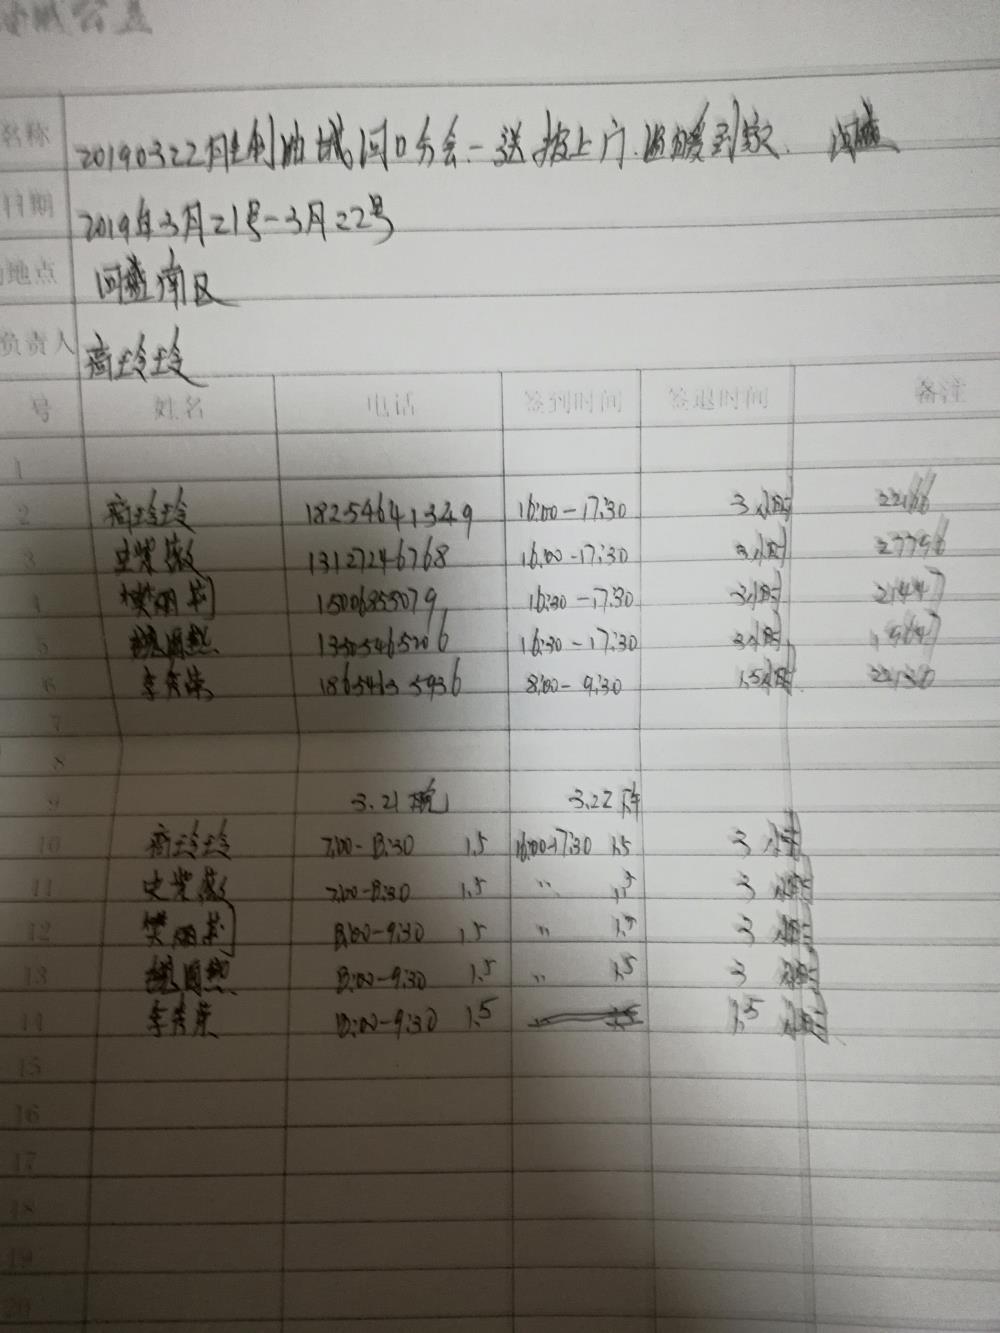 名称 20190322胜利油城河口分会-送被上门.温暖到家. 河盛
日期 2019年3月21号-3月22号
地点 河盛南区
负责人 商玲玲
号 姓名 电话 签到时间 签退时间 备注
1
2 商玲玲 18254641349 16:00-17:30 3小时 22166
3 史紫薇 13127246768 16:00-17:30 3小时 27796
4 樊丽莉 15006855079 16:30-17:30 3小时 21447
5 13505465206 16:30-17:30 3小时
6 李秀荣 18654635936 8:00-9:30 1.5小时 22130
7
8
9 3.21晚 3.22下午
10 商玲玲 7:00-8:30 1.5 16:00-17:30 1.5 3 小时
11 史紫薇 7:00-8:30 1.5 " 1.5 3 小时
12 樊丽莉 8:00-9:30 1.5 " 1.5 3 小时
13 8:00-9:30 1.5 " 1.5 3 小时
14 李秀荣 8:00-9:30 1.5 1.5 小时
15
16
17
18
19
20